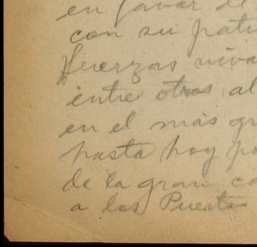 en favor de
con su patri
fuerzas viva
entre otros al
en el más gr
hasta hoy po
de la gran co
a los Puerto